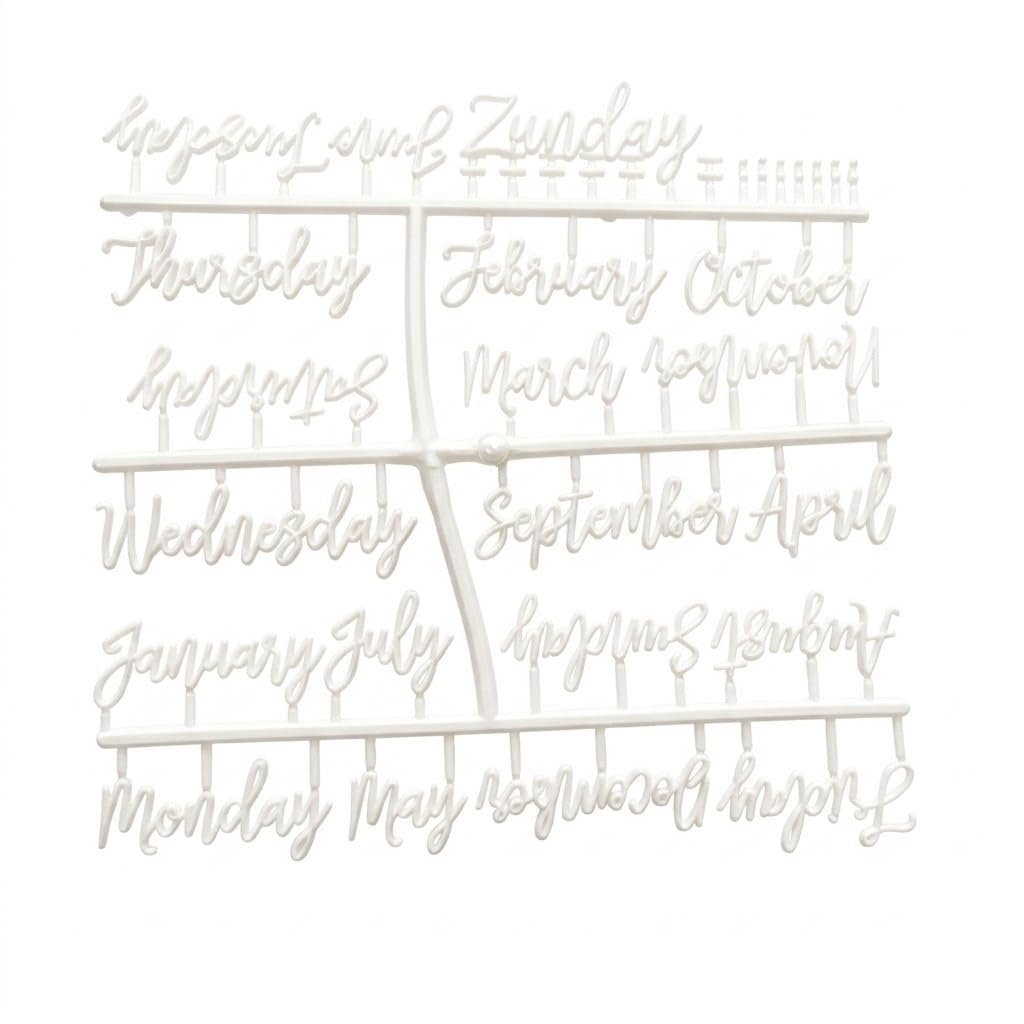 Tuesday June Zunday
Thursday February October
Saturday March November
Wednesday September April
January July Sunday August
Monday May December Friday